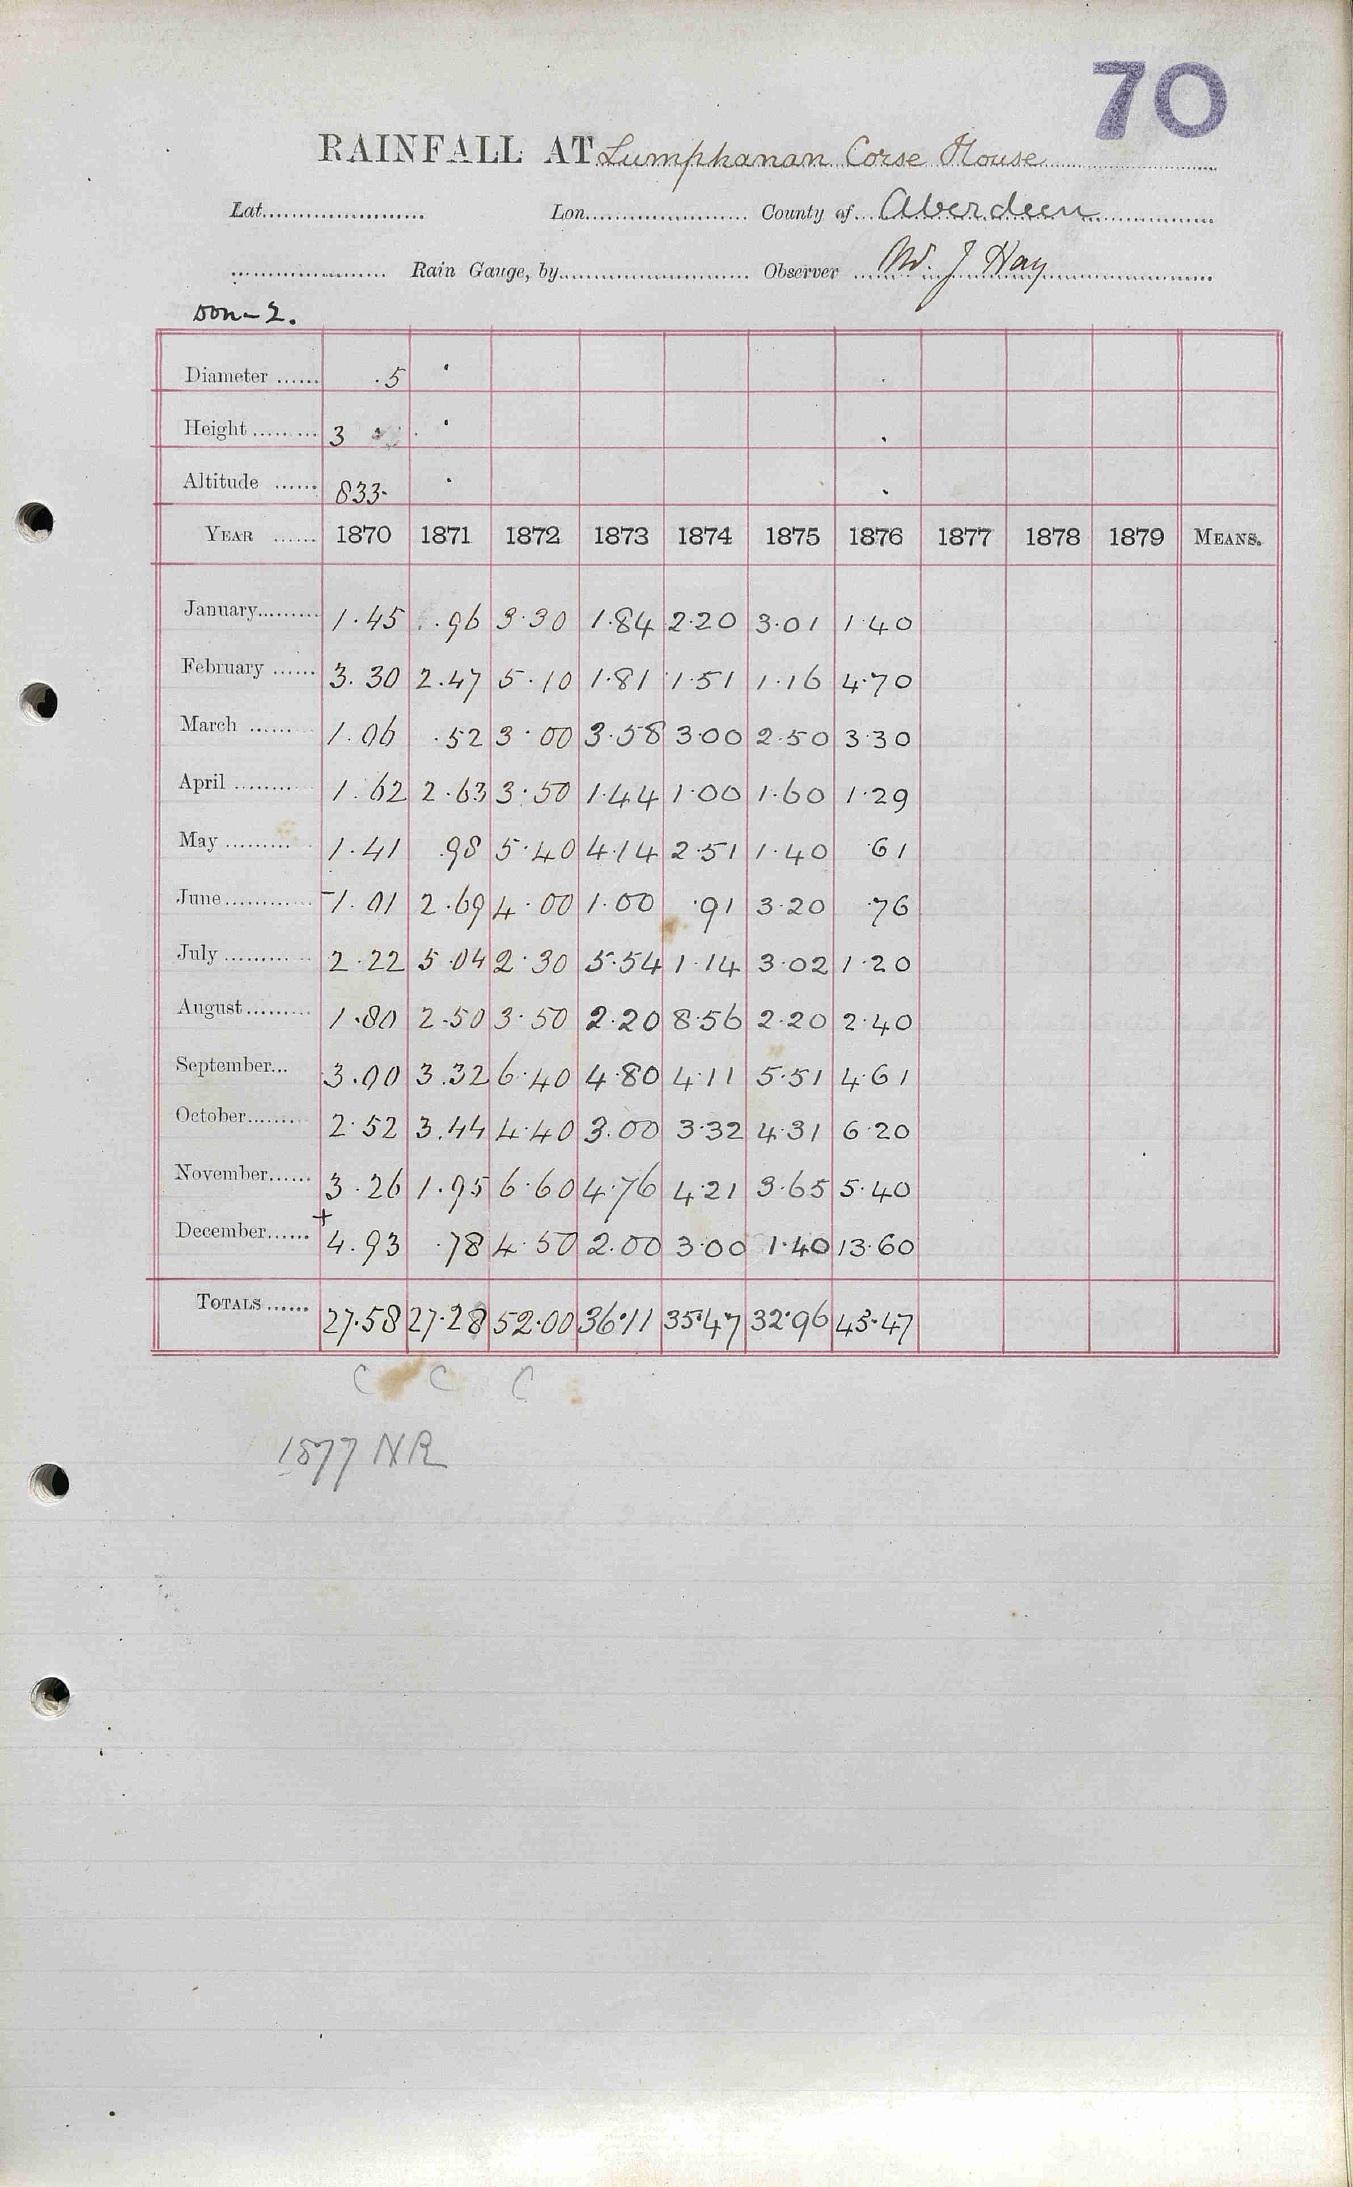 70
RAINFALL AT Lumphanan Corse House
Lat...................... Lon...................... County of Aberdeen
..................... Rain Gauge, by......................... Observer W. J Hay
Don-2.
Diameter ...... .5
Height ......... 3
Altitude ...... 833.
YEAR ...... 1870 1871 1872 1873 1874 1875 1876 1877 1878 1879 MEANS.
January......... 1.45 .96 3.30 1.84 2.20 3.01 1.40
February ...... 3.30 2.47 5.10 1.81 1.51 1.16 4.70
March ......... 1.06 .52 3.00 3.58 3.00 2.50 3.30
April ............ 1.62 2.63 3.50 1.44 1.00 1.60 1.29
May ............ 1.41 .98 5.40 4.14 2.51 1.40 .61
June............ 1.01 2.69 4.00 1.00 .91 3.20 .76
July ............ 2.22 5.04 2.30 5.54 1.14 3.02 1.20
August......... 1.80 2.50 3.50 2.20 8.56 2.20 2.40
September... 3.00 3.32 6.40 4.80 4.11 5.51 4.61
October......... 2.52 3.44 4.40 3.00 3.32 4.31 6.20
November...... 3.26 1.95 6.60 4.76 4.21 3.65 5.40
+
December...... 4.93 .78 4.50 2.00 3.00 1.40 13.60
TOTALS ...... 27.58 27.28 52.00 36.11 35.47 32.96 45.47
C C C
1877 NR